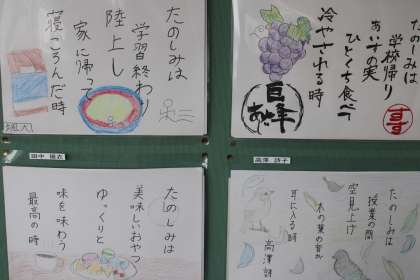 たのしみは
学習終わり
陸上し
家に帰って
寝ころんだ時
たのしみは
学校帰り
あいすの実
ひとくち食べて
冷やされる時
巨峰
あいす
田中 優衣
高澤 詩子
たのしみは
美味しいおやつ
ゆっくりと
味を味わう
最高の時
たのしみは
授業の間
空見上げ
木の葉の音が
耳に入る時